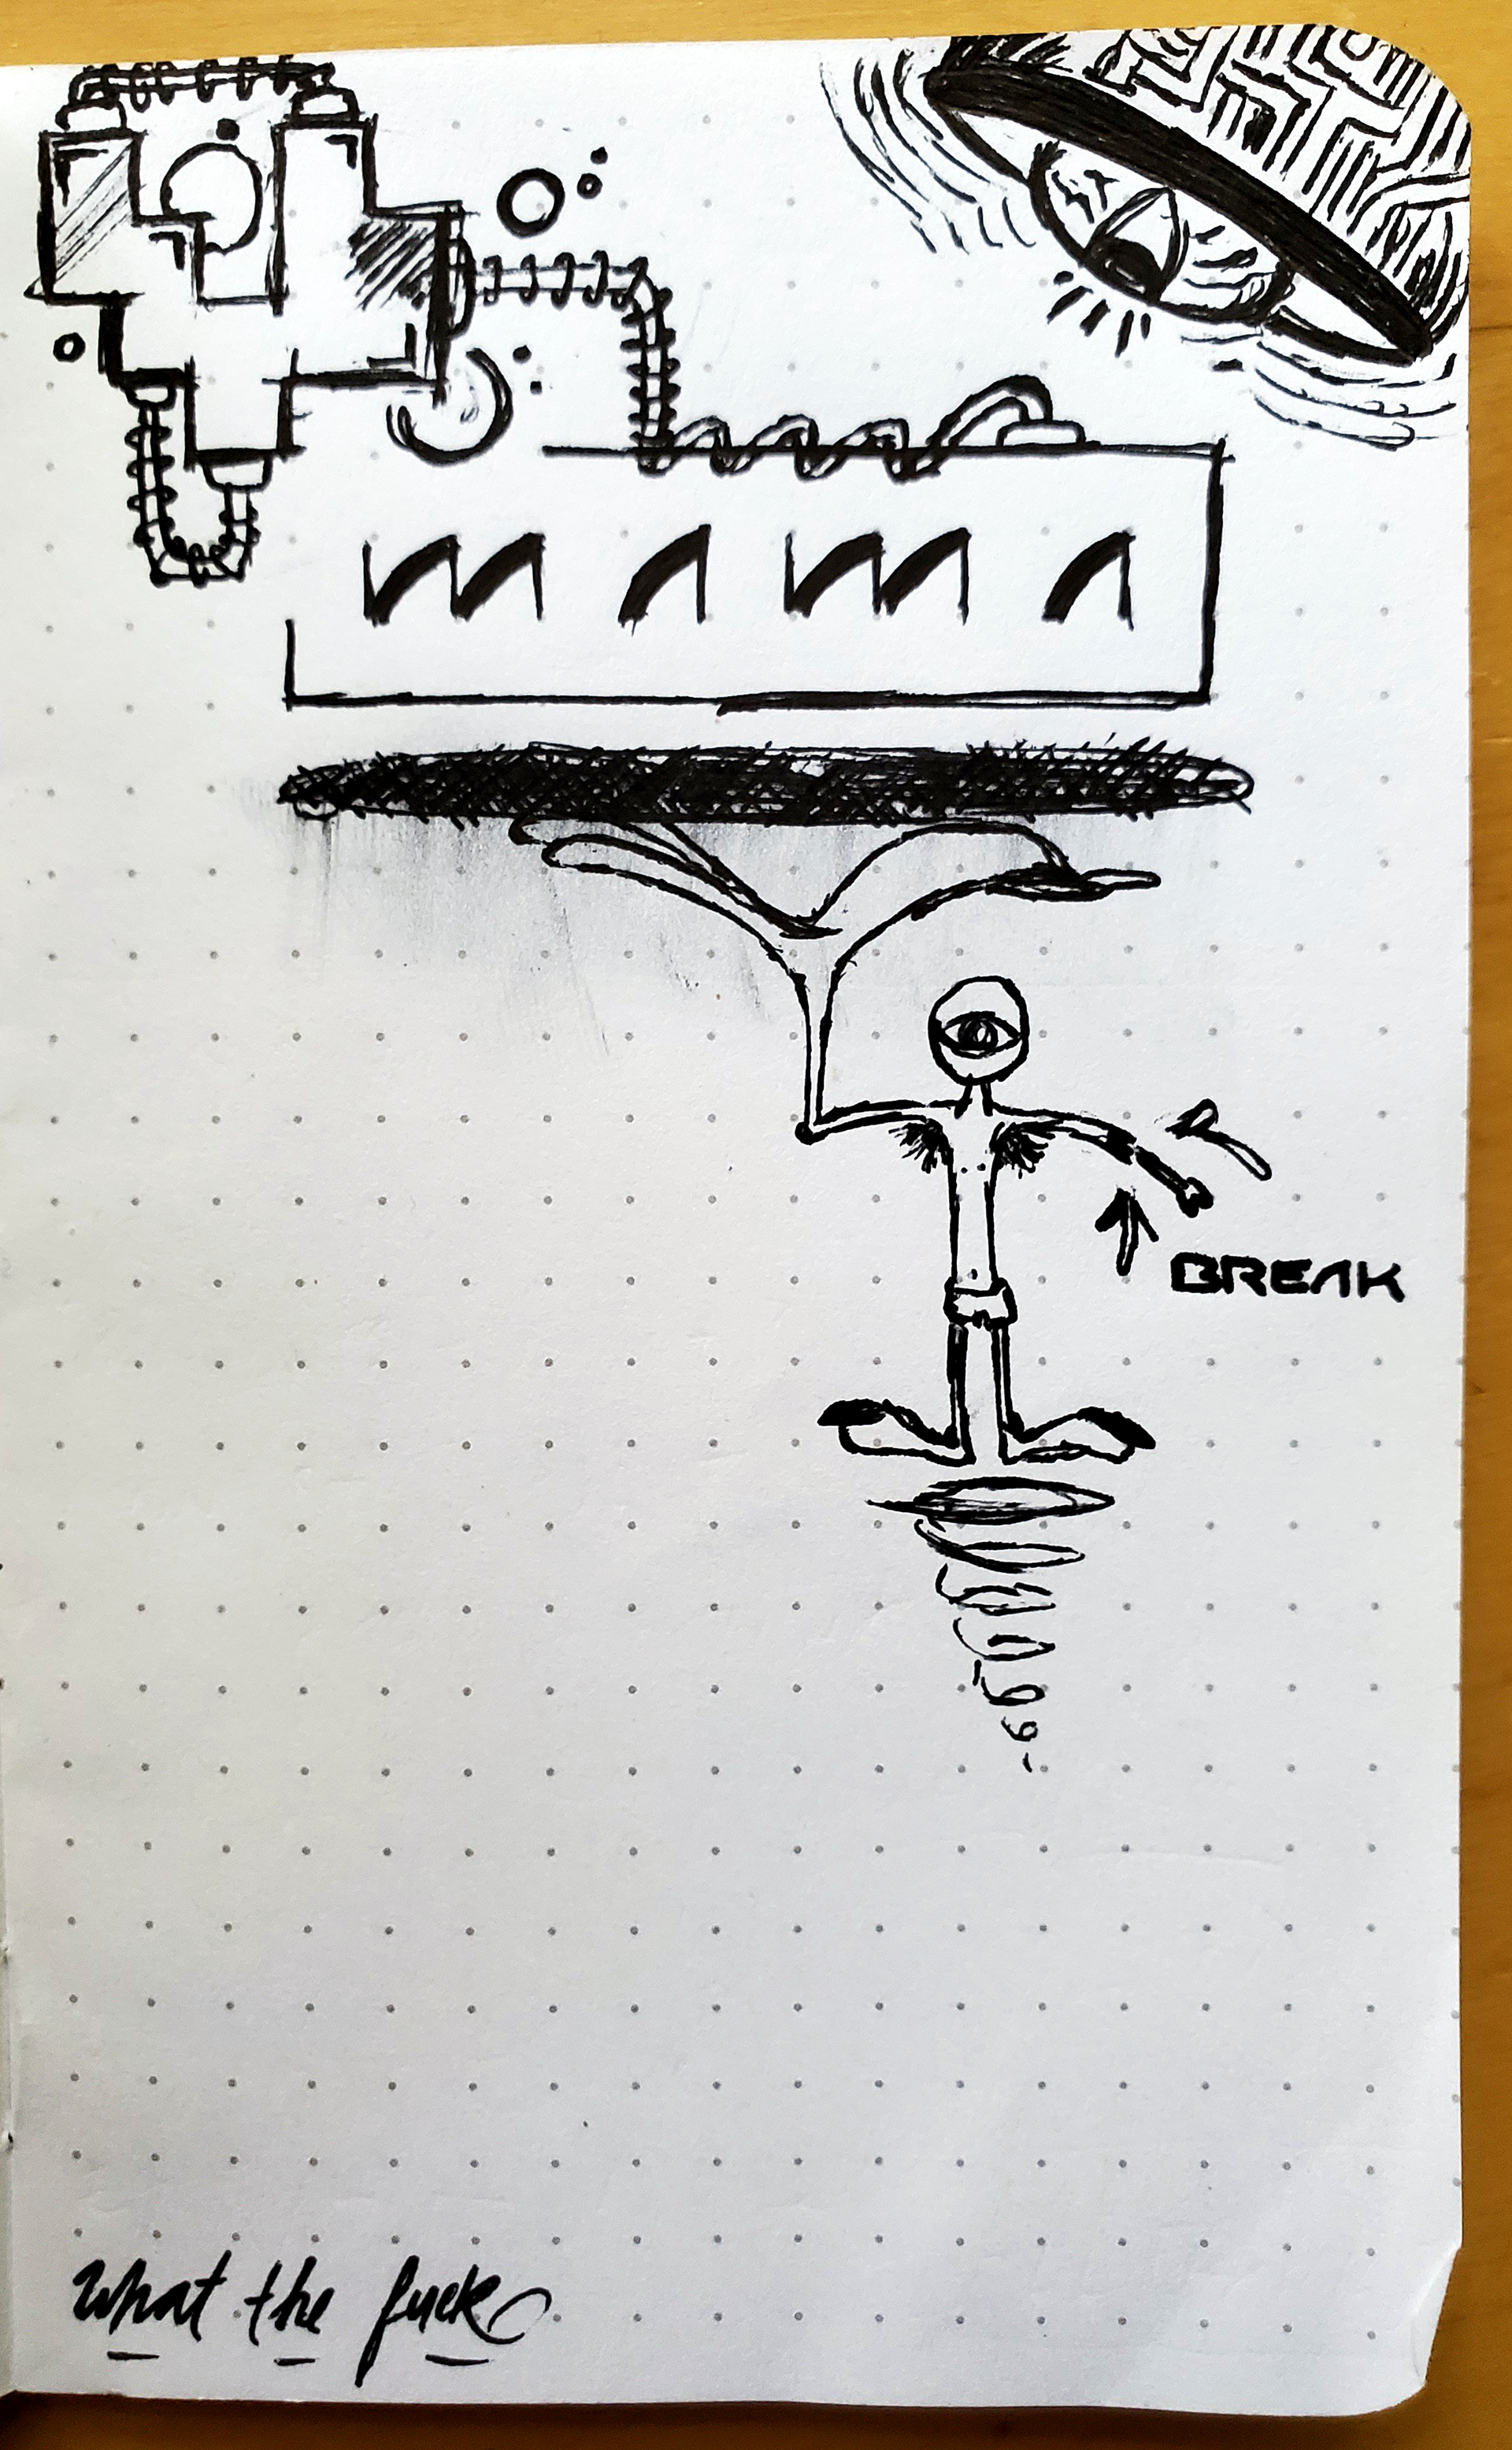 MAMA
BREAK
what the fuck